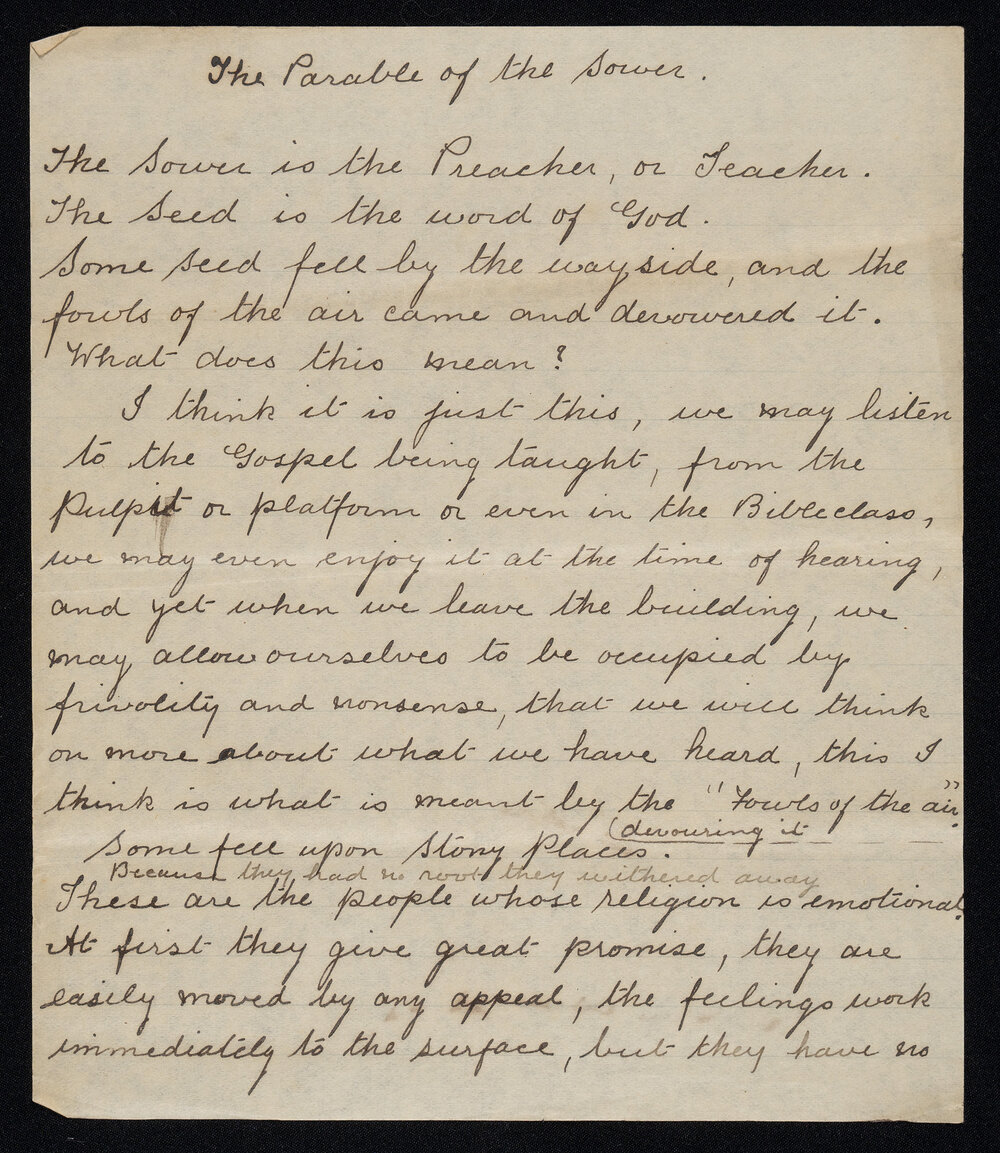 The Parable of the Sower.
The Sower is the Preacher, or Teacher.
The Seed is the word of God.
Some seed fell by the wayside, and the
fowls of the air came and devowered it.
What does this mean?
I think it is just this, we may listen
to the Gospel being taught, from the
Pulpit or platform or even in the Bibleclass,
we may even enjoy it at the time of hearing,
and yet when we leave the building, we
may allow ourselves to be occupied by
frivolity and nonsense, that we will think
on more about what we have heard, this I
think is what is meant by the "Fowls of the air".
(devouring it
Some fell upon Stony Places.
Because they had no root they withered away
These are the people whose religion is emotional.
At first they give great promise, they are
easily moved by any appeal, the feelings work
immediately to the surface, but they have no